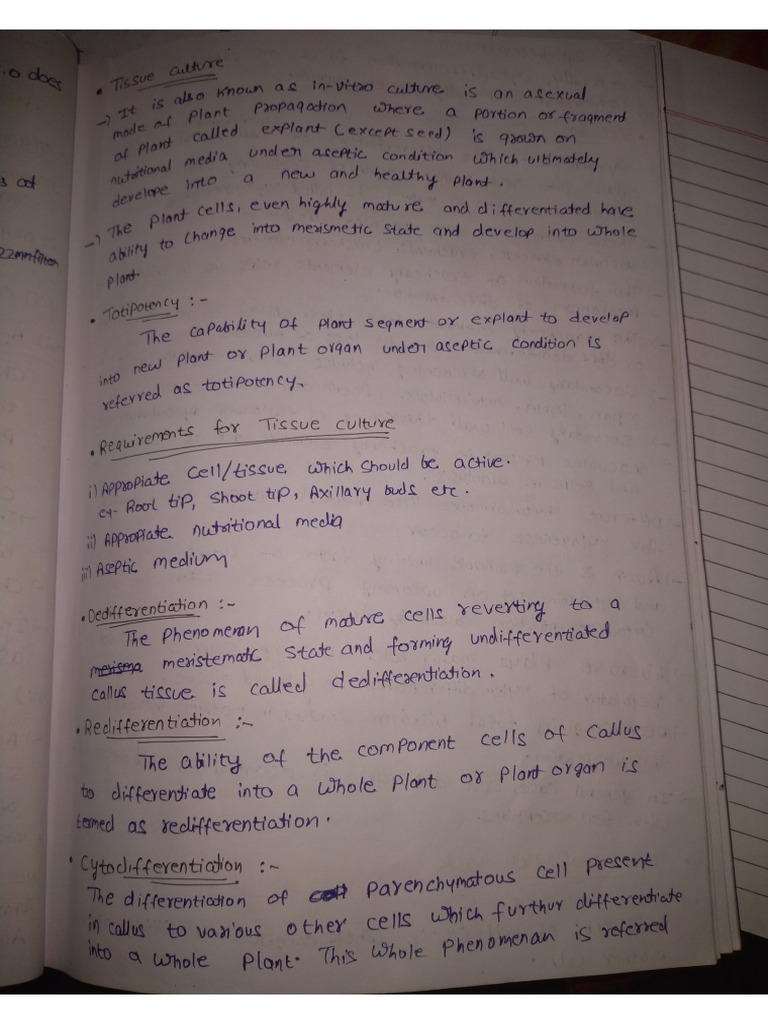 .o does
s of
22mm filter
• Tissue culture
→) It is also known as in-vitro culture is an asexual
mode of Plant Propagation where a portion or fragment
of Plant called explant (except seed) is grown on
nutritional media under aseptic condition which ultimately
develope into a new and healthy Plant.
→) The Plant cells, even highly mature and differentiated have
ability to change into merismetic state and develop into whole
Plant.
• Totipotency :-
The capability of Plant segment or explant to develop
into new Plant or Plant organ under aseptic condition is
referred as totipotency.
• Requirements for Tissue culture
i) Appropiate cell/tissue which should be active.
eg- Root tip, Shoot tip, Axillary buds etc.
ii) Appropiate nutritional media
iii) Aseptic medium
• Dedifferentiation :-
The Phenomenon of mature cells reverting to a
merisma meristematic state and forming undifferentiated
callus tissue is called dedifferentiation.
• Redifferentiation :-
The ability of the component cells of callus
to differentiate into a whole Plant or Plant organ is
termed as redifferentiation.
• Cytodifferentiation :-
The differentiation of cell Parenchymatous cell present
in callus to various other cells which furthur differentiate
into a whole Plant. This whole Phenomenan is referred